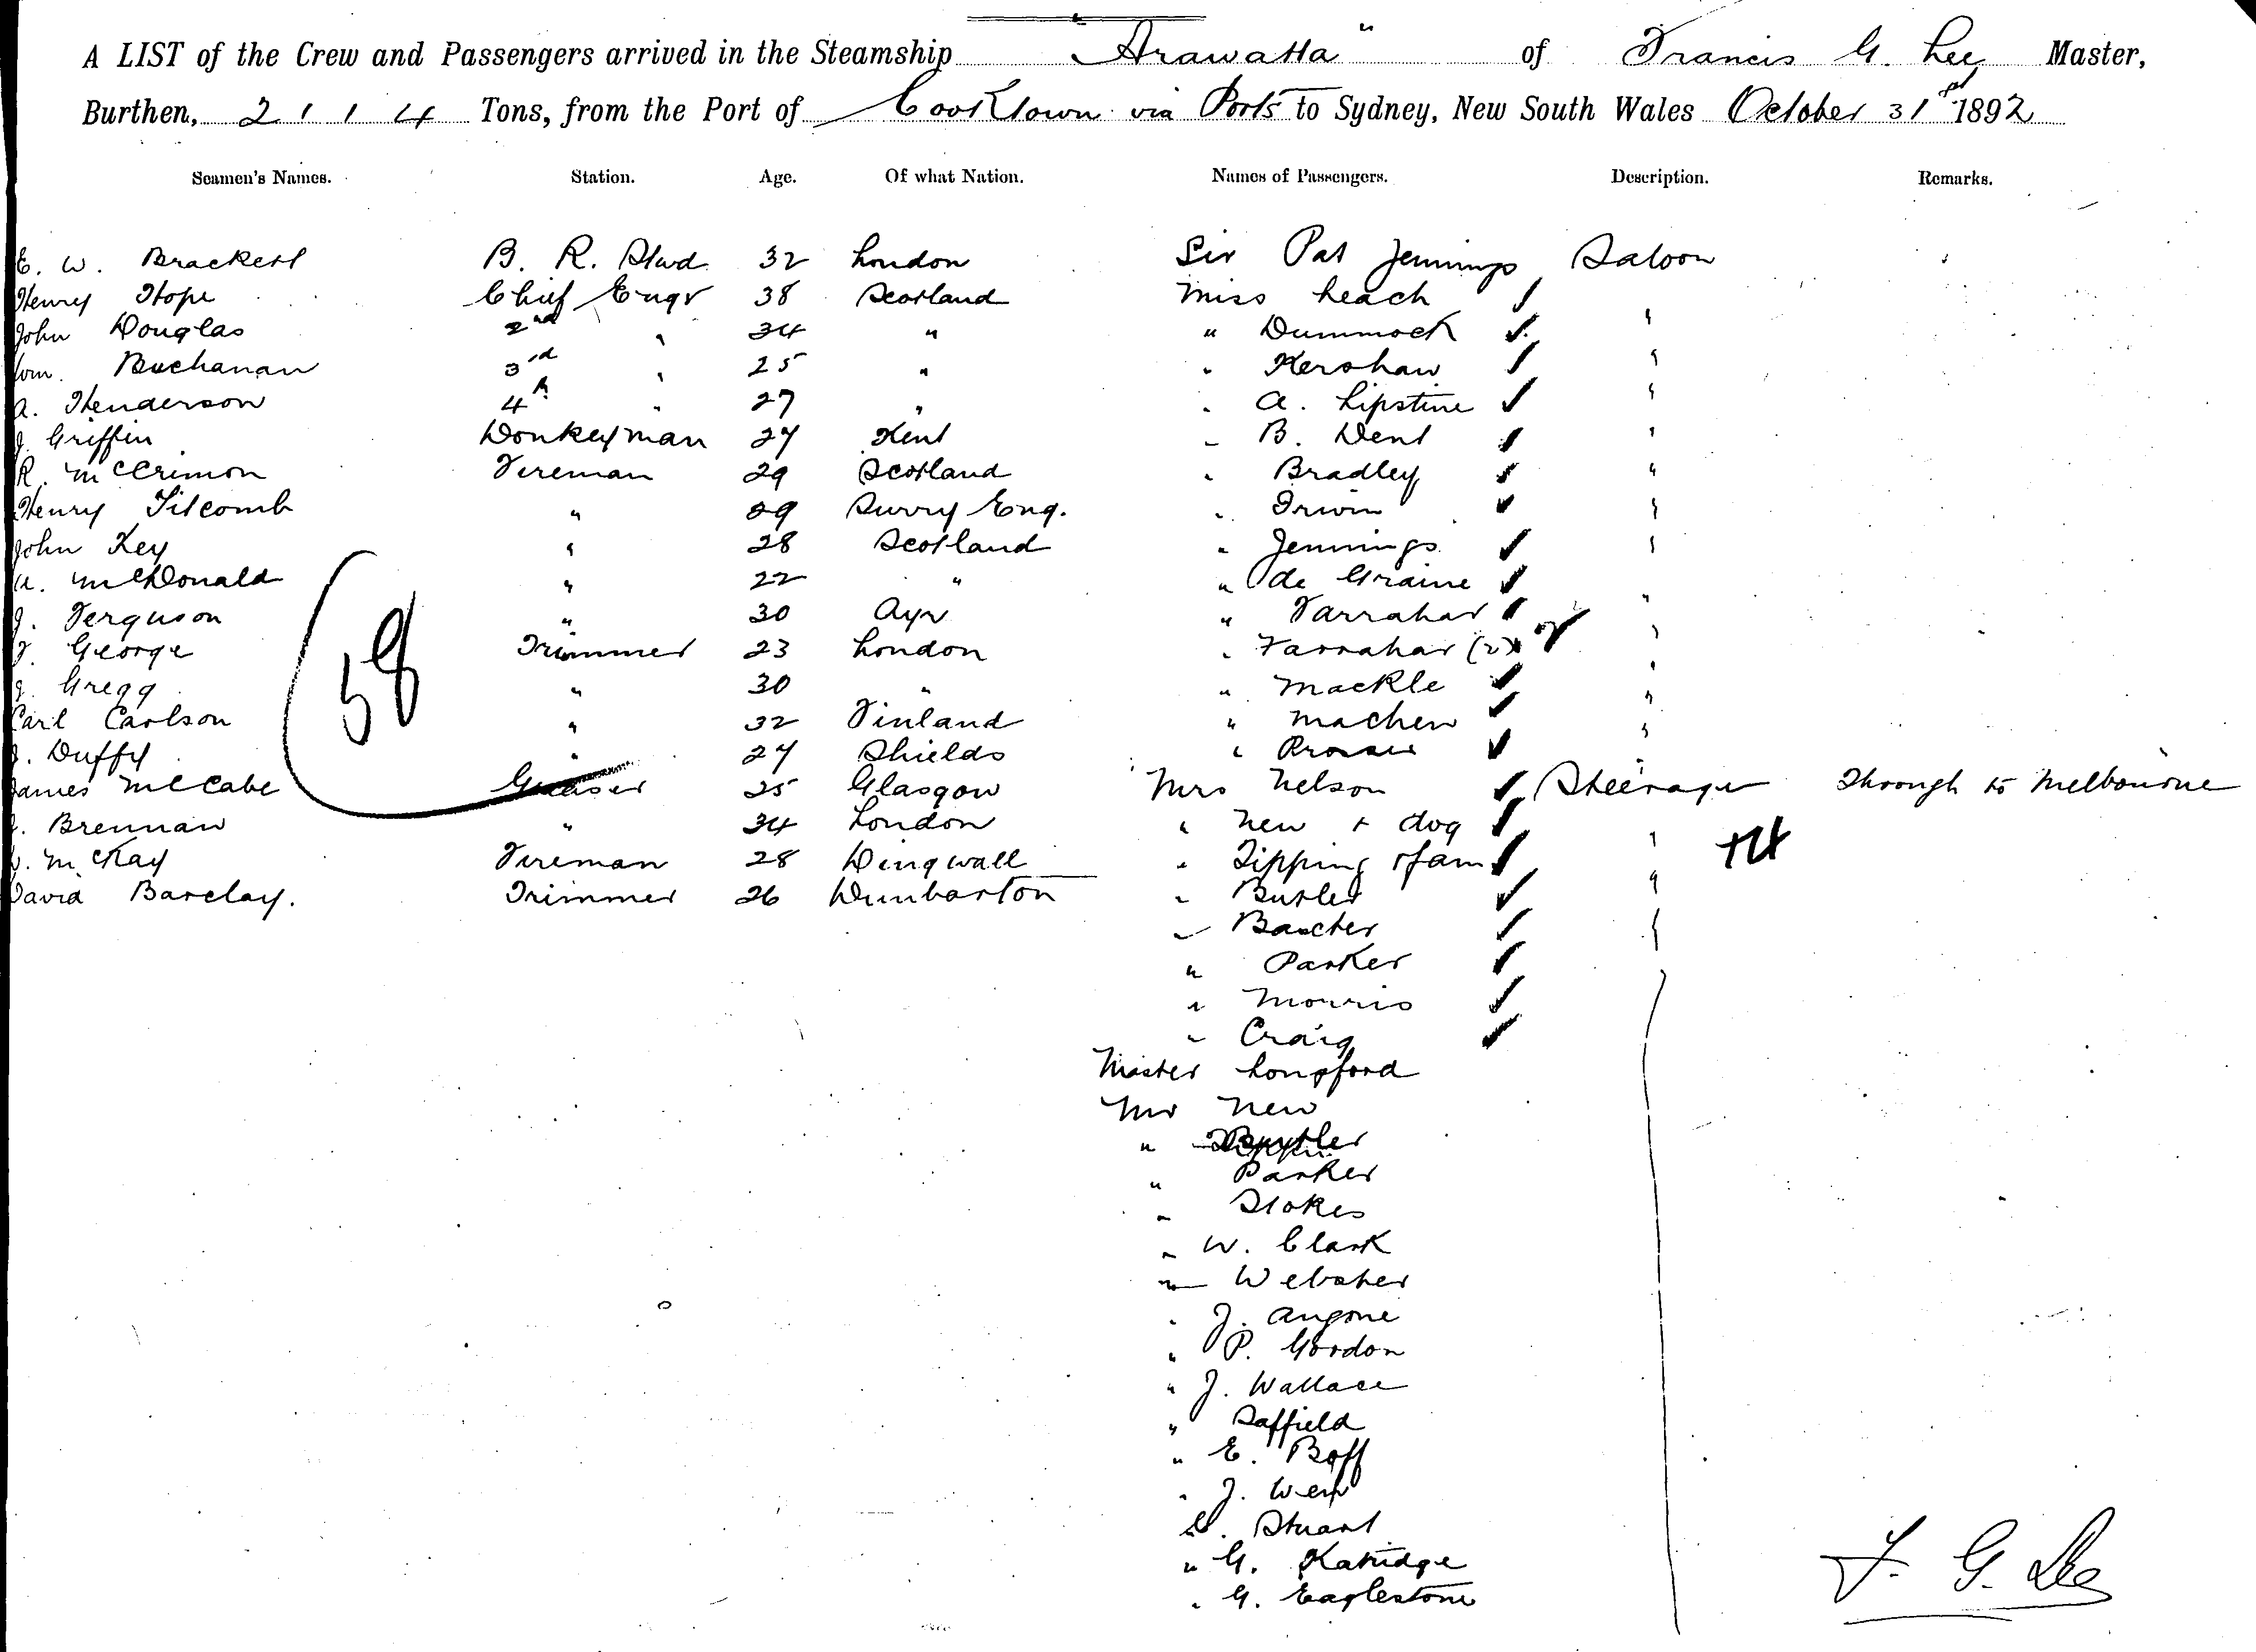 A LIST of the Crew and Passengers arrived in the Steamship "Arawatta" of Francis G. Lee Master,
Burthen, 2114 Tons, from the Port of Cooktown via Ports to Sydney, New South Wales October 31st 1892
Seamen's Names. Station. Age. Of what Nation. Names of Passengers. Description. Remarks.
E. W. Brackett B. R. Stwd 32 London Sir Pat Jennings Saloon
Henry Hope Chief Engr 38 Scotland Miss Leach
John Douglas 2nd " 34 " " Dummock "
Wm. Buchanan 3rd " 25 " " Kershaw "
A. Henderson 4th " 27 " " A. Lipstine "
J. Griffin Donkeyman 27 Kent " B. Dent "
R. McCrimon Fireman 29 Scotland " Bradley "
Henry Titcomb " 29 Surry Eng. " Irwin "
John Key " 28 Scotland " Jennings "
A. McDonald " 22 " " de Graine
J. Ferguson " 30 Ayr " Farrahar "
George Trimmer 23 London " Farrahar (2) "
Gregg " 30 " " Mackle "
Carl Carlson " 32 Finland " Machen "
J. Duffy " 27 Shields " Prosser "
James McCabe Greaser 25 Glasgow Mrs Nelson Steerage Through to Melbourne
J. Brennan " 34 London " New + dog
McKay Fireman 28 Dingwall " Tipping + fam "
David Barclay. Trimmer 26 Dumbarton " Butler "
" Baxter "
" Parker
" Morris
" Craig
Master Longford
Mr New
" Butler
" Parker
" Stokes
" W. Clark
" Webster
" J. Angone
" P. Gordon
" J. Wallace
" Saffield
" E. Boff
" J. Weir
" Stuart
" G. Katridge
" G. Eaglestone
58
F. G. Lee